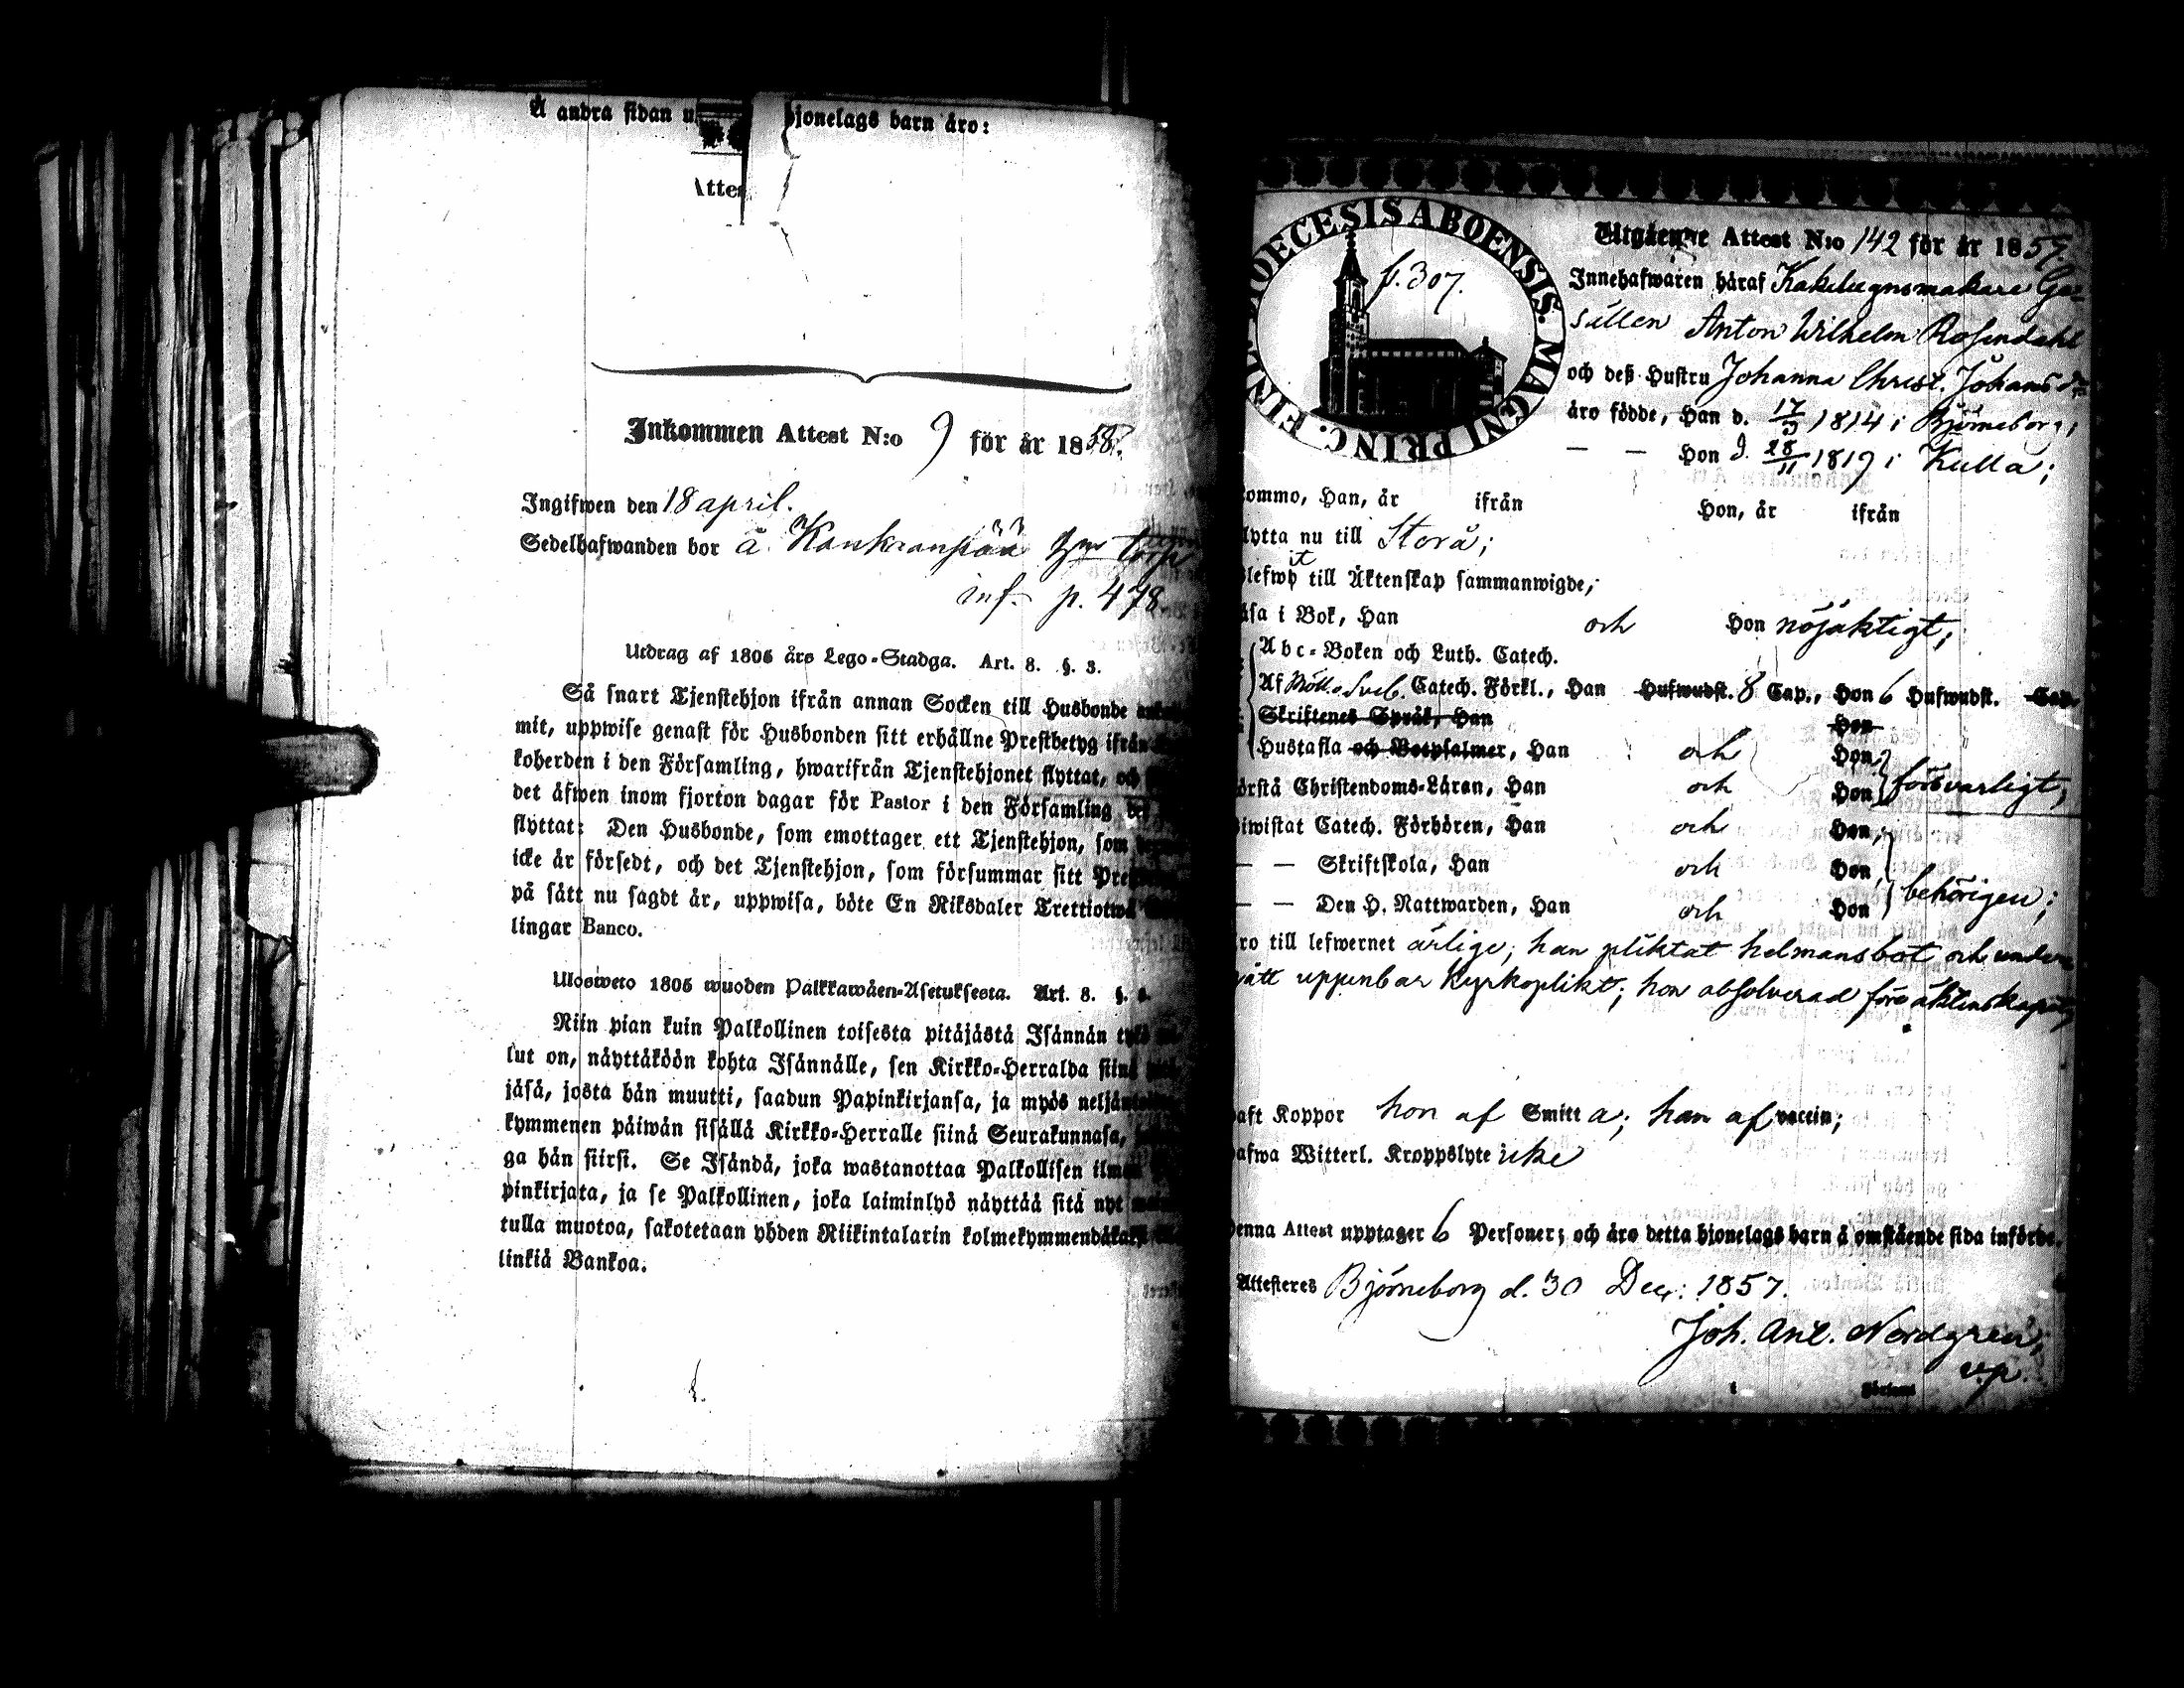 Å andra sidan u jonelags barn äro:
Attes
Inkommen Attest N:o 9 för år 1858.
Ingifwen den 18 april.
Sedelhafwanden bor å Kankaanpää
inf. p. 478.
Utdrag af 1805 års Lego-Stadga. Art. 8. §. 3.
Så snart Tjenstehjon ifrån annan Socken till Husbonde
mit, uppwise genast för Husbonden sitt erhållne Prestbetyg ifrån
koherden i den Församling, hwarifrån Tjenstehjonet flyttat, och
det äfwen inom fjorton dagar för Pastor i den Församling
flyttat: Den Husbonde, som emottager ett Tjenstehjon, som
icke är försedt, och det Tjenstehjon, som försummar sitt
på sätt nu sagdt är, uppwisa, böte En Riksdaler Trettiotwå
lingar Banco.
Ulosweto 1805 wuoden Palkkawäen-Asetuksesta. Art. 8. §.
Niin pian kuin Palkollinen toisesta pitäjästä Isännän tykö
lut on, näyttäköön kohta Isännälle, sen Kirkko-Herralda siinä
jäsä, josta hän muutti, saadun Papinkirjansa, ja myös neljän
kymmenen päiwän sisällä Kirkko-Herralle siinä Seurakunnasa,
ga hän siirsi. Se Isändä, joka wastanottaa Palkollisen ilman
pinkirjata, ja se Palkollinen, joka laiminlyö näyttää sitä nyt
tulla muotoa, sakotetaan yhden Riikintalarin kolmekymmendäkaksi
linkiä Bankoa.
DIOECESIS ABOENSIS. MAGNI PRINC. FINL
p. 307.
Utgående Attest N:o 142 för år 1857.
Innehafwaren häraf Kakelugnsmakare Ge-
sällen Anton Wilhelm Rosendahl
och deß Hustru Johanna Christ. Johansdr
äro födde, Han d. 17/5 1814 i Björneborg;
— — Hon d. 28/11 1819 i Kulla;
ommo, Han, år ifrån Hon, år ifrån
lytta nu till Storå;
lefwit till Äktenskap sammanwigde,
äsa i Bok, Han och Hon nöjaktigt;
Abc-Boken och Luth. Catech.
Af Möll. o Sveb. Catech. Förkl., Han Hufwudst. 8 Cap., Hon 6 Hufwudst. Cap.
Skriftenes Språk, Han Hon
Hustafla och Botpsalmer, Han och Hon
örstå Christendoms-Läran, Han och Hon försvarligt;
iwistat Catech. Förhören, Han och Hon,
— — Skriftskola, Han och Hon,
— — Den H. Nattwarden, Han och Hon behörigen;
ro till lefwernet ärlige; han pliktat helmansbot och under-
gått uppenbar kyrkoplikt; hon absolverad före äktenskapet;
aft Koppor hon af Smitta; han af vaccin;
afwa Witterl. Kroppslyte icke
enna Attest upptager 6 Personer; och äro detta hjonelags barn å omstående sida införde.
Attesteres Björneborg d. 30 Dec: 1857.
Joh. Ant. Nordgren,
v.p.